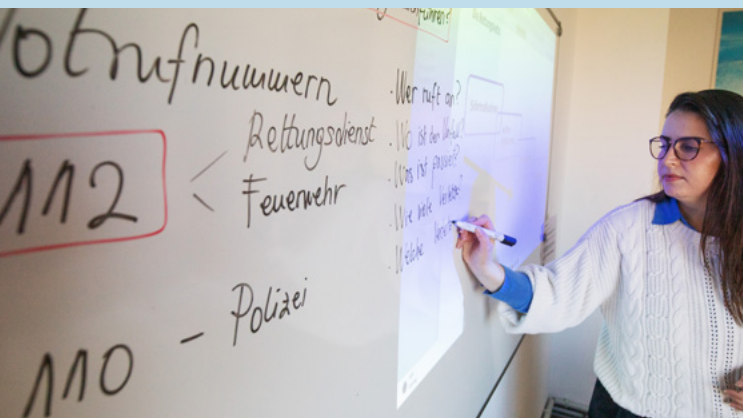 Notrufnummern
112
Rettungsdienst
Feuerwehr
110 - Polizei
· Wer ruft an?
· Wo ist der Unfall?
· Was ist passiert?
· Wie viele Verletzte?
· Welche